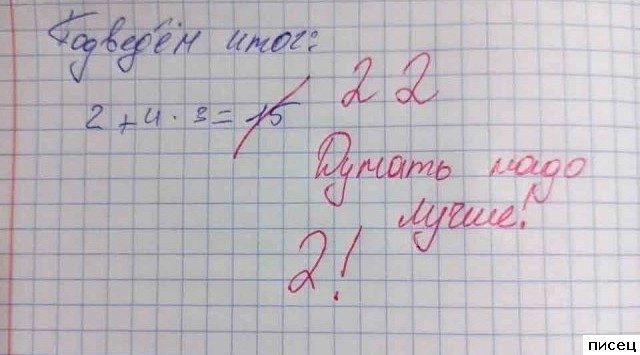 Подведём итог:
2 + 4 · 3 = 15 22
Думать надо
лучше!
2!
писец